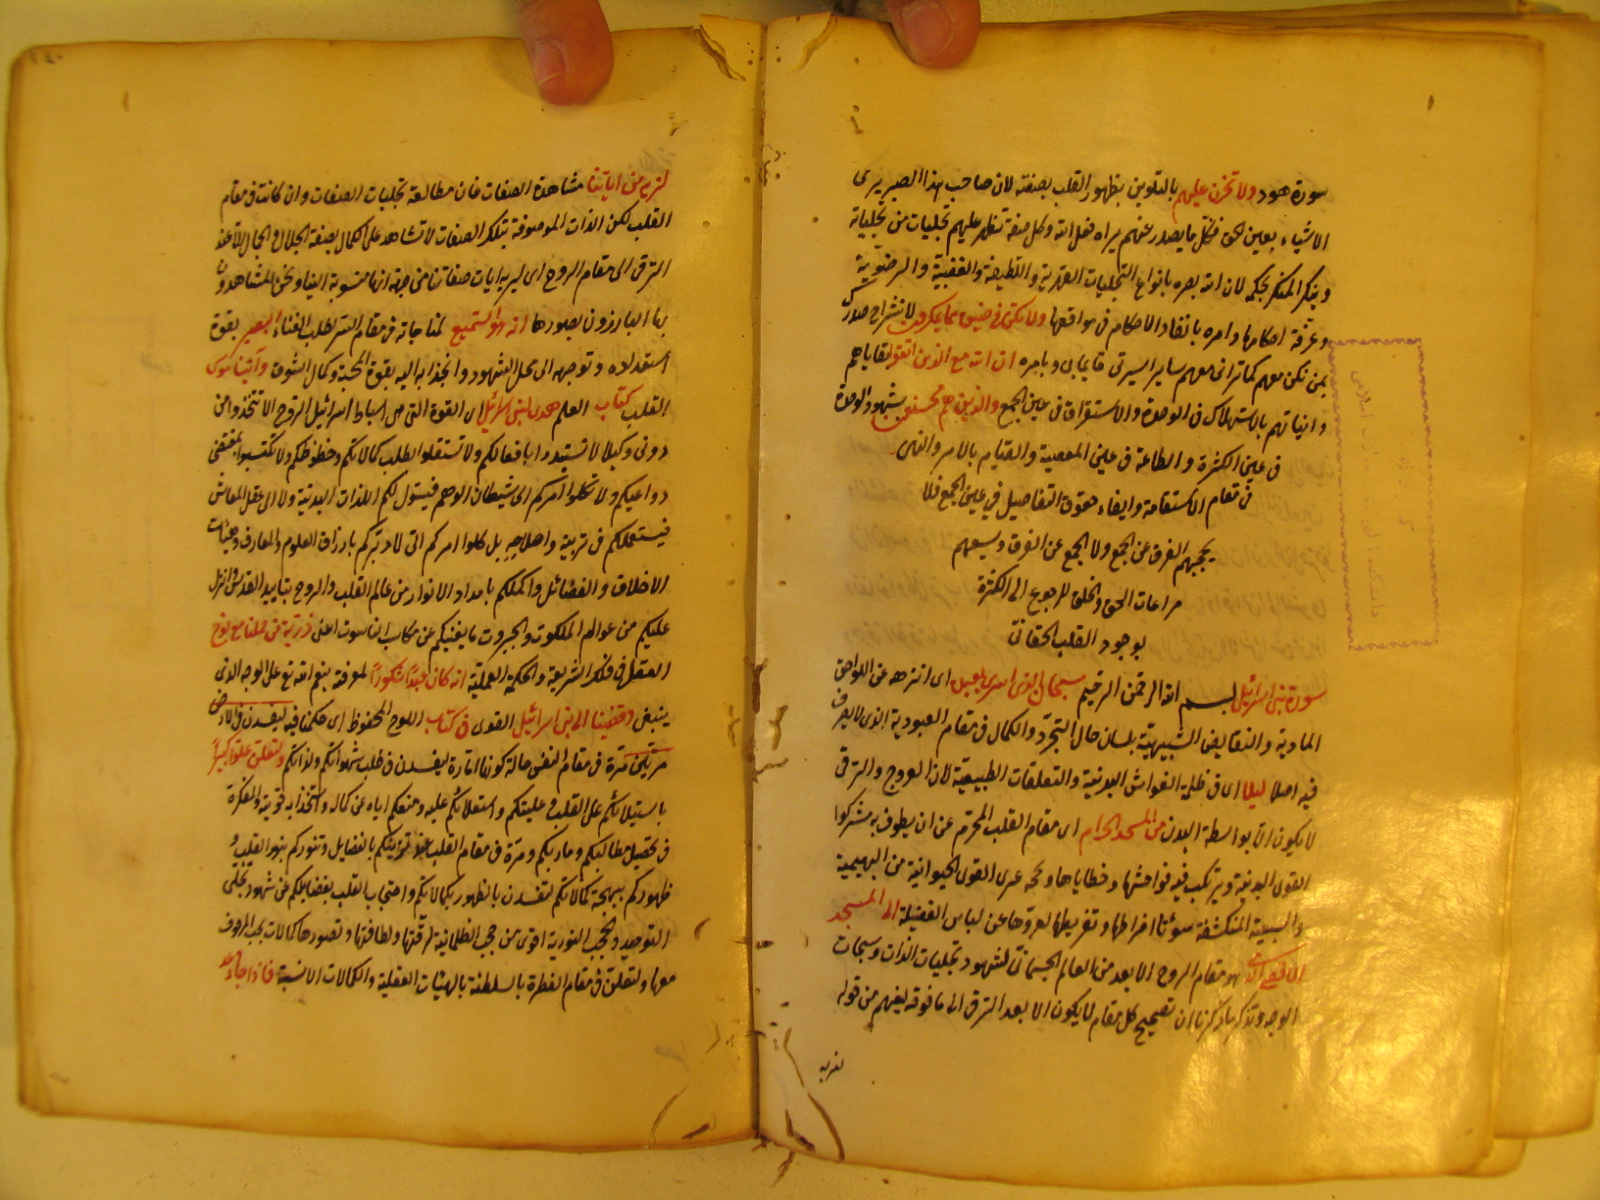 سورة هود ولا تحزن عليهم بالتلوين بظهور القلب بصفته لان صاحب هذا الصبر يرى
الاشياء بعين الحق فكل ما يصدر عنهم يراه فعل الله وكل صفة تظهر عليهم تجليات من تجلياته
وينكر المنكر بحكمه لان الله بصره بانواع التجليات القهرية واللطيفة والغضبية والرضوية
وعرفه احكامها وامره بانفاد الاحكام في مواقعها ولا تكن في ضيق مما يمكرون لانشراح صدرك
بمن نكن معهم كما تراني معهم ساير السيرتي قايما بي وبامره ان الله مع الذين اتقوا بقاياهم
وانياتهم بالاستهلاك في الوحدة والاستغراق في عين الجمع والذين هم محسنون بشهود الوحدة
في عين الكثرة والطاعة في عين المعصية والقيام بالامر والنهى
في مقام الاستقامة وايفاء حقوق التفاصيل في عين الجمع فلا
يحجبهم الفرق عن الجمع ولا الجمع عن الفرق ويسعهم
مراعات الحق والخلق للرجوع الى الكثرة
بوجود القلب الحقاني
سورة بني اسرائيل بسم الله الرحمن الرحيم سبحان الذى اسرى بعبده اى انزهه عن اللواحق
المادية والنقايص التشبيهية بلسان حال التجرد والكمال في مقام العبودية الذى لا تصرف
فيه اصلا ليلا اى في ظلمة الغواشى البدنية والتعلقات الطبيعية لان العروج والترقى
لا يكون الا بواسطة البدن من المسجد الحرام اى مقام القلب المحرم عن ان يطوف به مشركوا
القوى البدنية ويرتكب فيه فواحشها وخطاياها ويحجه عرى القوى الحيوانية من البهيمية
والسبعية المنكشفة سوءتا افراطها وتفريطها لعروها عن لباس الفضيلة الى المسجد
الاقصى الذى هو مقام الروح الابعد من العالم الجسماني لشهود تجليات الذات وسبحات
الوجه وتذكر ما ذكرنا ان تصحيح كل مقام لا يكون الا بعد الترقى الى ما فوقه لتفهم من قوله
لنريه
لنريه من اياتنا مشاهدة الصفات فان مطالعة تجليات الصفات وان كانت في مقام
القلب لكن الذات الموصوفة بتلك الصفات لا تشاهد على الكمال بصفة الجلال والجمال الا عند
الترقى الى مقام الروح اى لنريه ايات صفاتنا من جهة انها منسوبة الينا ونحن المشاهدون
بها البارزون بصورها انه هو السميع لمناجاته في مقام السر لطلب الفناء البصير بقوة
استعداده وتوجهه الى محل الشهود وانجذابه اليه بقوة المحبة وكمال الشوق وآتينا موسى
القلب كتاب العلم هدى لبنى اسرائيل اى القوة التى هى اسباط اسرائيل الروح الا تتخذوا من
دونى وكيلا لا تستبدوا بافعالكم ولا تستقلوا بطلب كمالاتكم وحظوظكم ولا تكتسبوا بمقتضى
دواعيكم ولا تكلوا امركم الى شيطان الوهم فيسول لكم اللذات البدنية ولا الى عقل المعاش
فيستعملكم في تربيته واصلاحه بل كلوا امركم الى لادبركم بارزاق العلوم والمعارف وهيئات
الاخلاق والفضائل واكملكم بامداد الانوار من عالم القلب والروح بتاييد القدس وانزل
عليكم من عوالم الملكوت والجبروت ما يغنيكم عن مكاسب الناسوت اعنى ذرية من حملنا مع نوح
العقل في فلك الشريعة والحكمة العملية انه كان عبدا شكورا لمعرفة بنعم الله تع على الوجه الذى
ينبغى وقضينا الى بنى اسرائيل القوى في كتاب اللوح المحفوظ اى حكمنا فيه لتفسدن في الارض
مرتين مرة في مقام النفس حالة كونها امارة لتفسدن في طلب شهواتكم ولذاتكم ولتعلن علوا كبيرا
باستيلائكم على القلب وغلبتكم واستعلائكم عليه ومنعكم اياه عن كماله واستخدامه قوته المفكرة
في تحصيل مطالبكم ومآربكم ومرة في مقام القلب عند تزينكم بالفضايل وتنوركم بنور القلب و
ظهوركم ببهجة كمالاتكم لتفسدن بالظهور بكمالاتكم واحتجاب القلب بفضايلكم عن شهود تجلى
التوحيد والحجب النورية اقوى من حجب الظلمانية لرقتها ولطافتها وتصورها كمالات يجب الوقوف
معها ولتعلن في مقام الفطرة بالسلطنة بالهيئات العقلية والكمالات الانسية فاذا جاء وعد